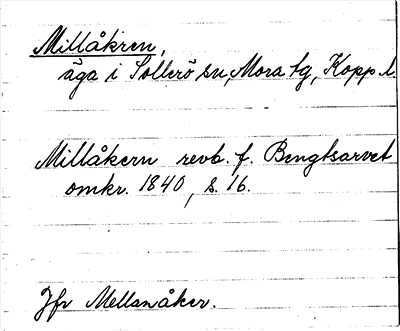 Millåkren,
äga i Sollerö sn, Mora tg, Kopp. l.
Millåkern revb. f. Bengtsarvet
omkr. 1840, s. 16.
Jfr Mellanåker.